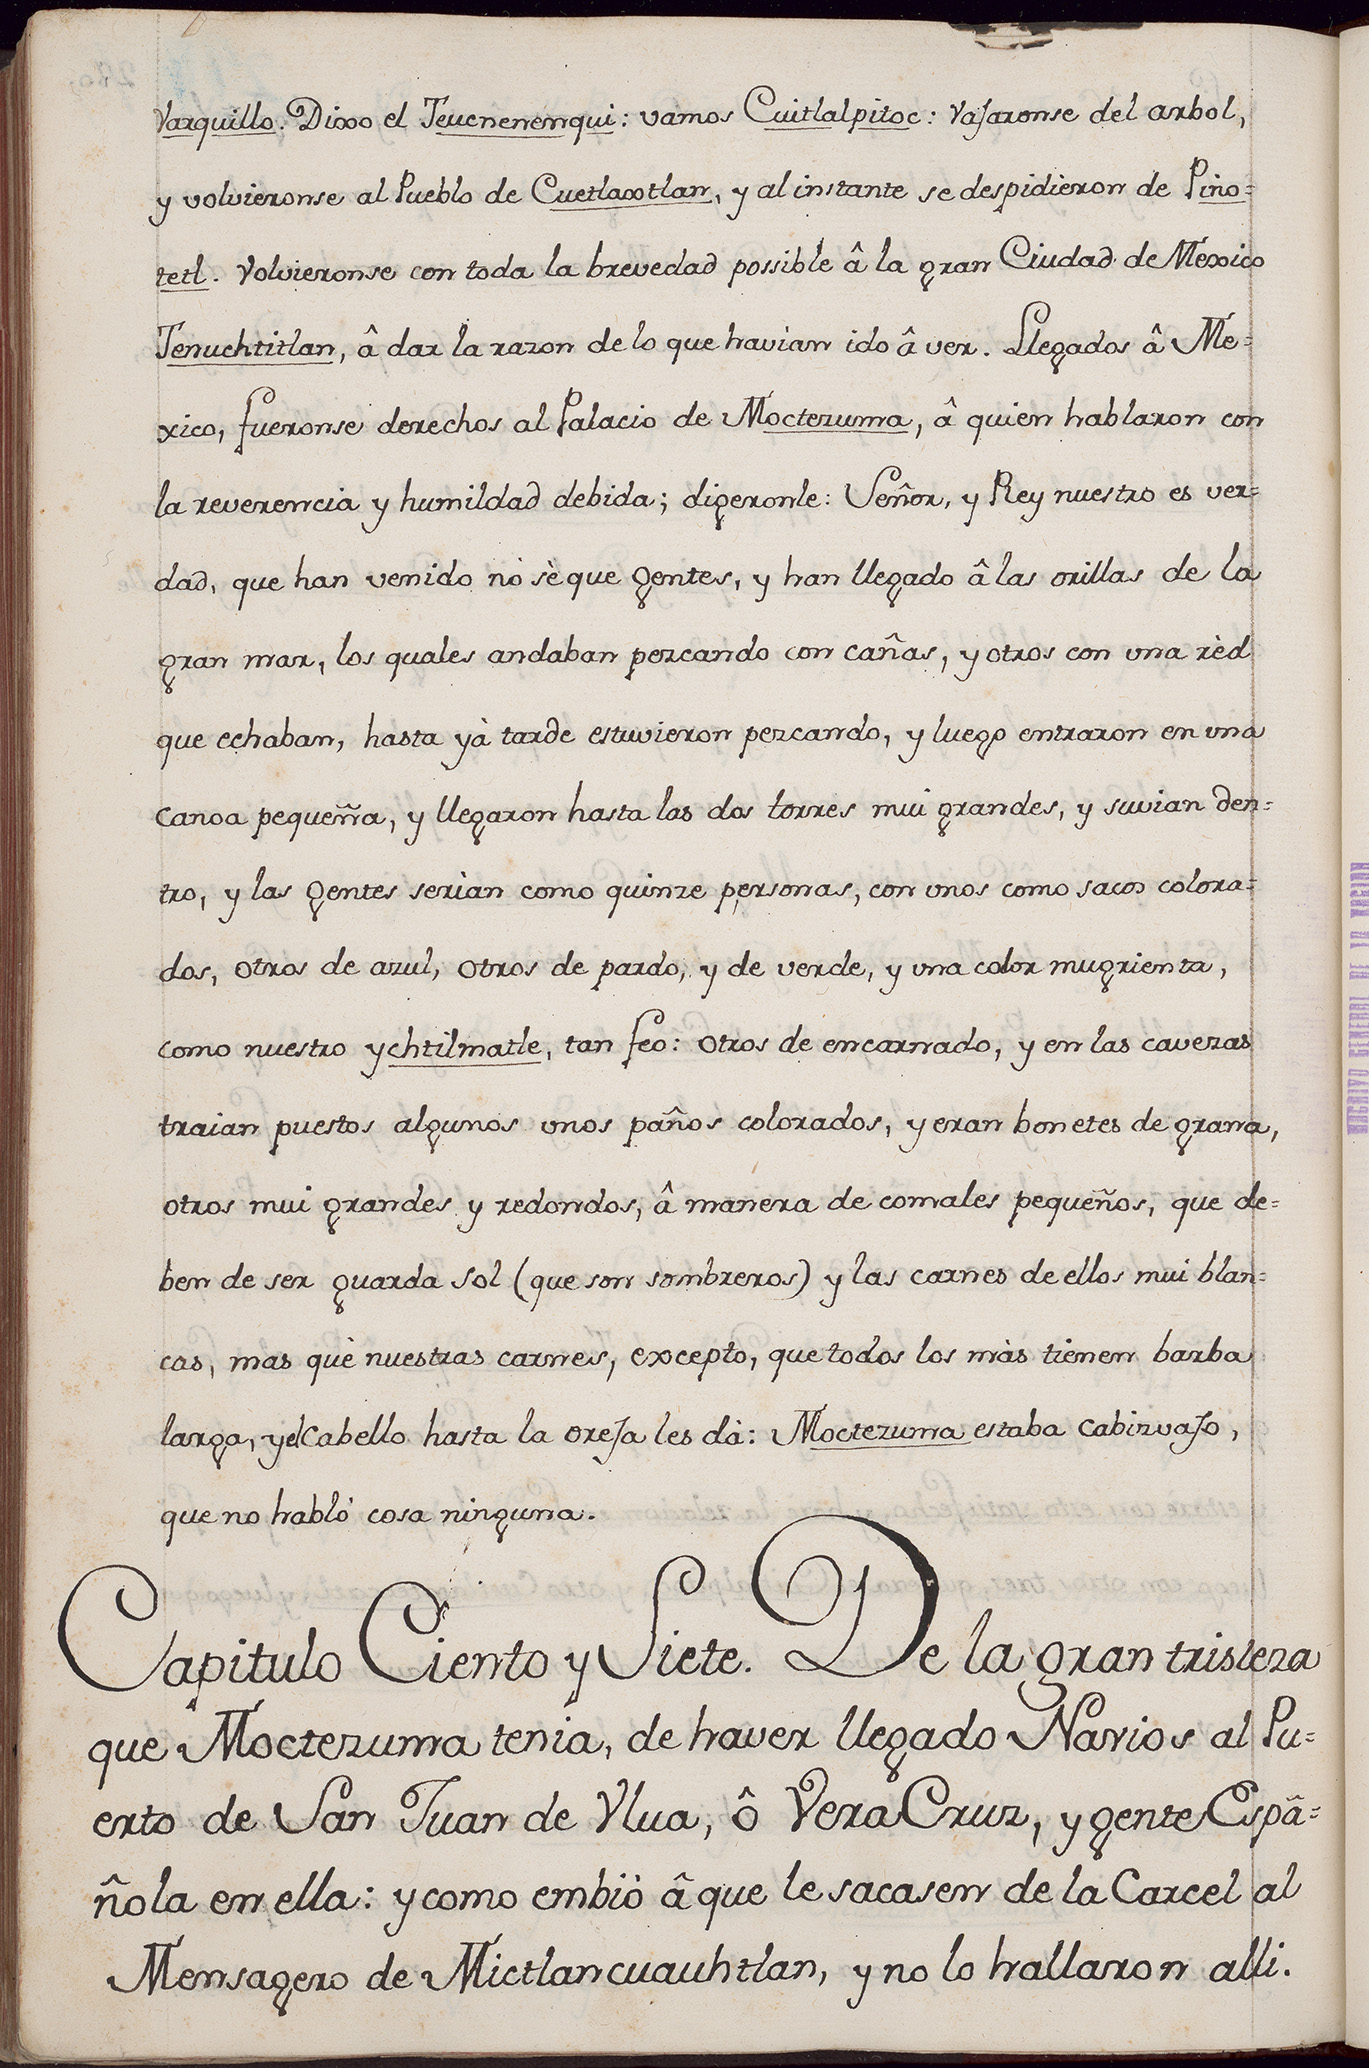 Varquillo. Dixo el Teucnenenqui: vamos Cuitlalpitoc: Vajaronse del arbol,
y volvieronse al Pueblo de Cuetlaxtlan, y al instante se despidieron de Pino=
tetl. Volvieronse con toda la brevedad possible â la gran Ciudad de Mexico
Tenuchtitlan, â dar la razon de lo que havian ido â ver. Llegados â Me=
xico, fueronse derechos al Palacio de Moctezuma, â quien hablaron con
la reverencia y humildad debida; digeronle: Señor, y Rey nuestro es ver=
dad, que han venido no sè que gentes, y han llegado â las orillas de la
gran mar, los quales andaban pezcando con cañas, y otros con una rèd
que echaban, hasta yà tarde estuvieron pezcando, y luego entraron en una
canoa pequeña, y llegaron hasta las dos torres mui grandes, y suvian den=
tro, y las gentes serian como quinze personas, con unos como sacos colora=
dos, otros de azul, otros de pardo, y de verde, y una color mugrienta,
como nuestro ychtilmatle, tan feo: otros de encarnado, y en las cavezas
traian puestos algunos unos paños colorados, y eran bonetes de grana,
otros mui grandes y redondos, â manera de comales pequeños, que de=
ben de ser guarda sol (que son sombreros) y las carnes de ellos mui blan=
cas, mas què nuestras carnes, excepto, que todos los màs tienen barba
larga, y el Cabello hasta la oreja les dà: Moctezuma estaba cabizvajo,
que no habló cosa ninguna.
Capitulo Ciento y Siete. De la gran tristeza
que Moctezuma tenia, de haver llegado Navios al Pu=
erto de San Juan de Vlua, ô Vera Cruz, y gente Espa=
ñola en ella: y como embiò â que le sacasen de la Carcel al
Mensagero de Mictlancuauhtlan, y no lo hallaron alli.
ARCHIVO GENERAL DE LA NACION